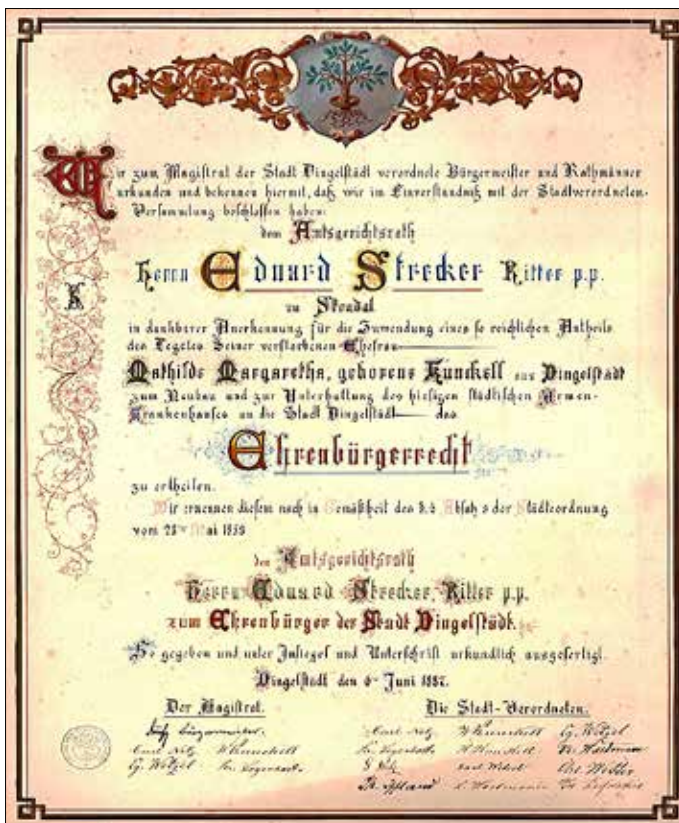 Wir zum Magistrat der Stadt Dingelstädt verordnete Bürgermeister und Rathmänner
urkunden und bekennen hiermit, daß wir im Einverständniß mit der Stadtverordneten-
Versammlung beschlossen haben:
dem Amtsgerichtsrath
Herrn Eduard Strecker Ritter p.p.
zu Stendal
in dankbarer Anerkennung für die Zuwendung eines so reichlichen Antheils
des Legates Seiner verstorbenen Ehefrau
Mathilde Margaretha, geborene Künckell aus Dingelstädt
zum Neubau und zur Unterhaltung des hiesigen städtischen Armen-
Krankenhauses an die Stadt Dingelstädt das
Ehrenbürgerrecht
zu ertheilen.
Wir ernennen diesem nach in Gemäßheit des Absatz der Städteordnung
vom Mai
den Amtsgerichtsrath
Herrn Eduard Strecker, Ritter p.p.
zum Ehrenbürger der Stadt Dingelstädt.
So gegeben und unter Insiegel und Unterschrift urkundlich ausgefertigt.
Dingelstädt den Juni
Der Magistrat. Die Stadt-Verordneten.
G. Wetzel
G. Wetzel